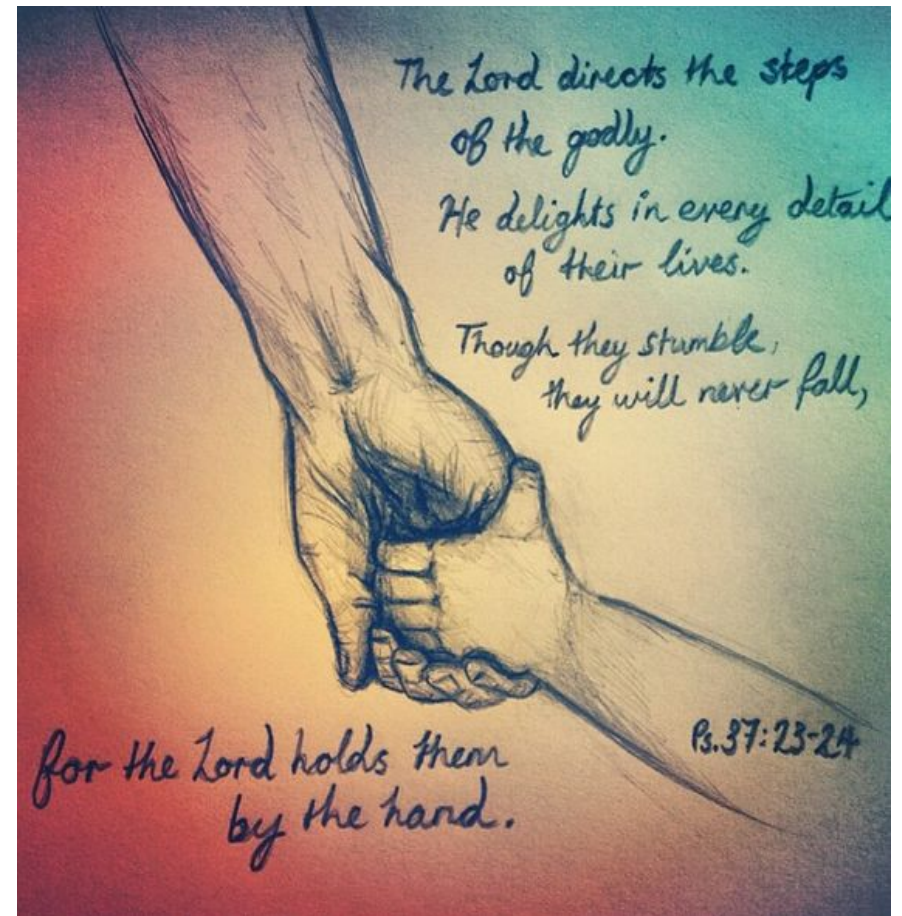 The Lord directs the steps
of the godly.
He delights in every detail
of their lives.
Though they stumble,
they will never fall,
for the Lord holds them
by the hand.
Ps.37:23-24